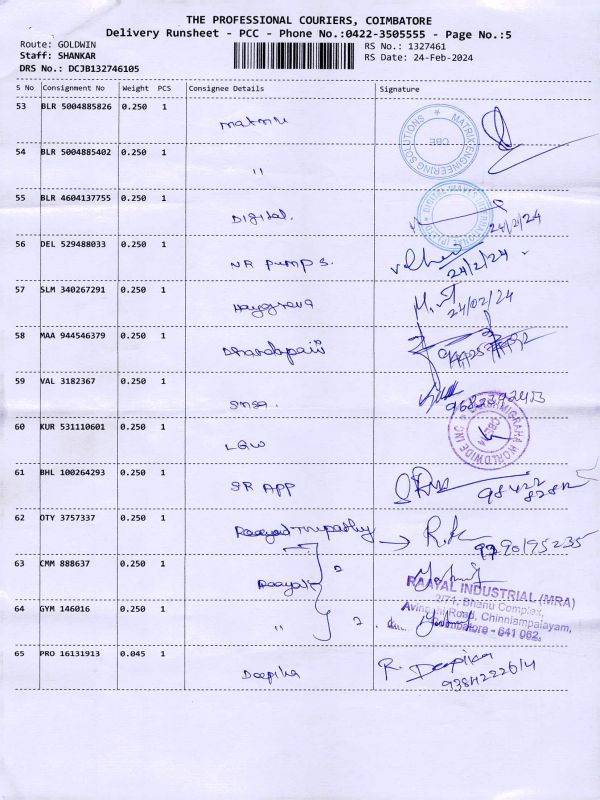 THE PROFESSIONAL COURIERS, COIMBATORE
Delivery Runsheet - PCC - Phone No.:0422-3505555 - Page No.:5
Route: GOLDWIN
Staff: SHANKAR
DRS No.: DCJB132746105
RS No.: 1327461
RS Date: 24-Feb-2024
S No Consignment No Weight PCS Consignee Details Signature
53 BLR 5004885826 0.250 1
MATRIX ENGINEERING SOLUTIONS CBE
54 BLR 5004885402 0.250 1 "
55 BLR 4604137755 0.250 1 Digital. 24/2/24
56 DEL 529488033 0.250 1 NR pumps. 24/2/24
57 SLM 340267291 0.250 1 Haygreeva 24/02/24
58 MAA 944546379 0.250 1
59 VAL 3182367 0.250 1 SNSA.
60 KUR 531110601 0.250 1 LGW
WORLDWIDE INC
61 BHL 100264293 0.250 1 SR APP 98422
62 OTY 3757337 0.250 1 R.K
9790195235
63 CMM 888637 0.250 1 Raayal 2
RAAYAL INDUSTRIAL (MRA)
2/71, Bhanu Complex,
Road, Chinniampalayam,
Coimbatore - 641 062.
64 GYM 146016 0.250 1 " 2
65 PRO 16131913 0.045 1 Deepika R. Deepika